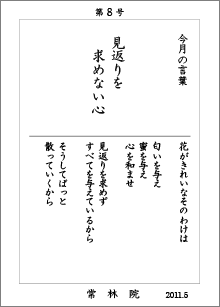 第8号
今月の言葉
見返りを
求めない心
花がきれいなそのわけは
匂いを与え
蜜を与え
心を和ませ
見返りを求めず
すべてを与えているから
そうしてぱっと
散っていくから
常林院
2011.5